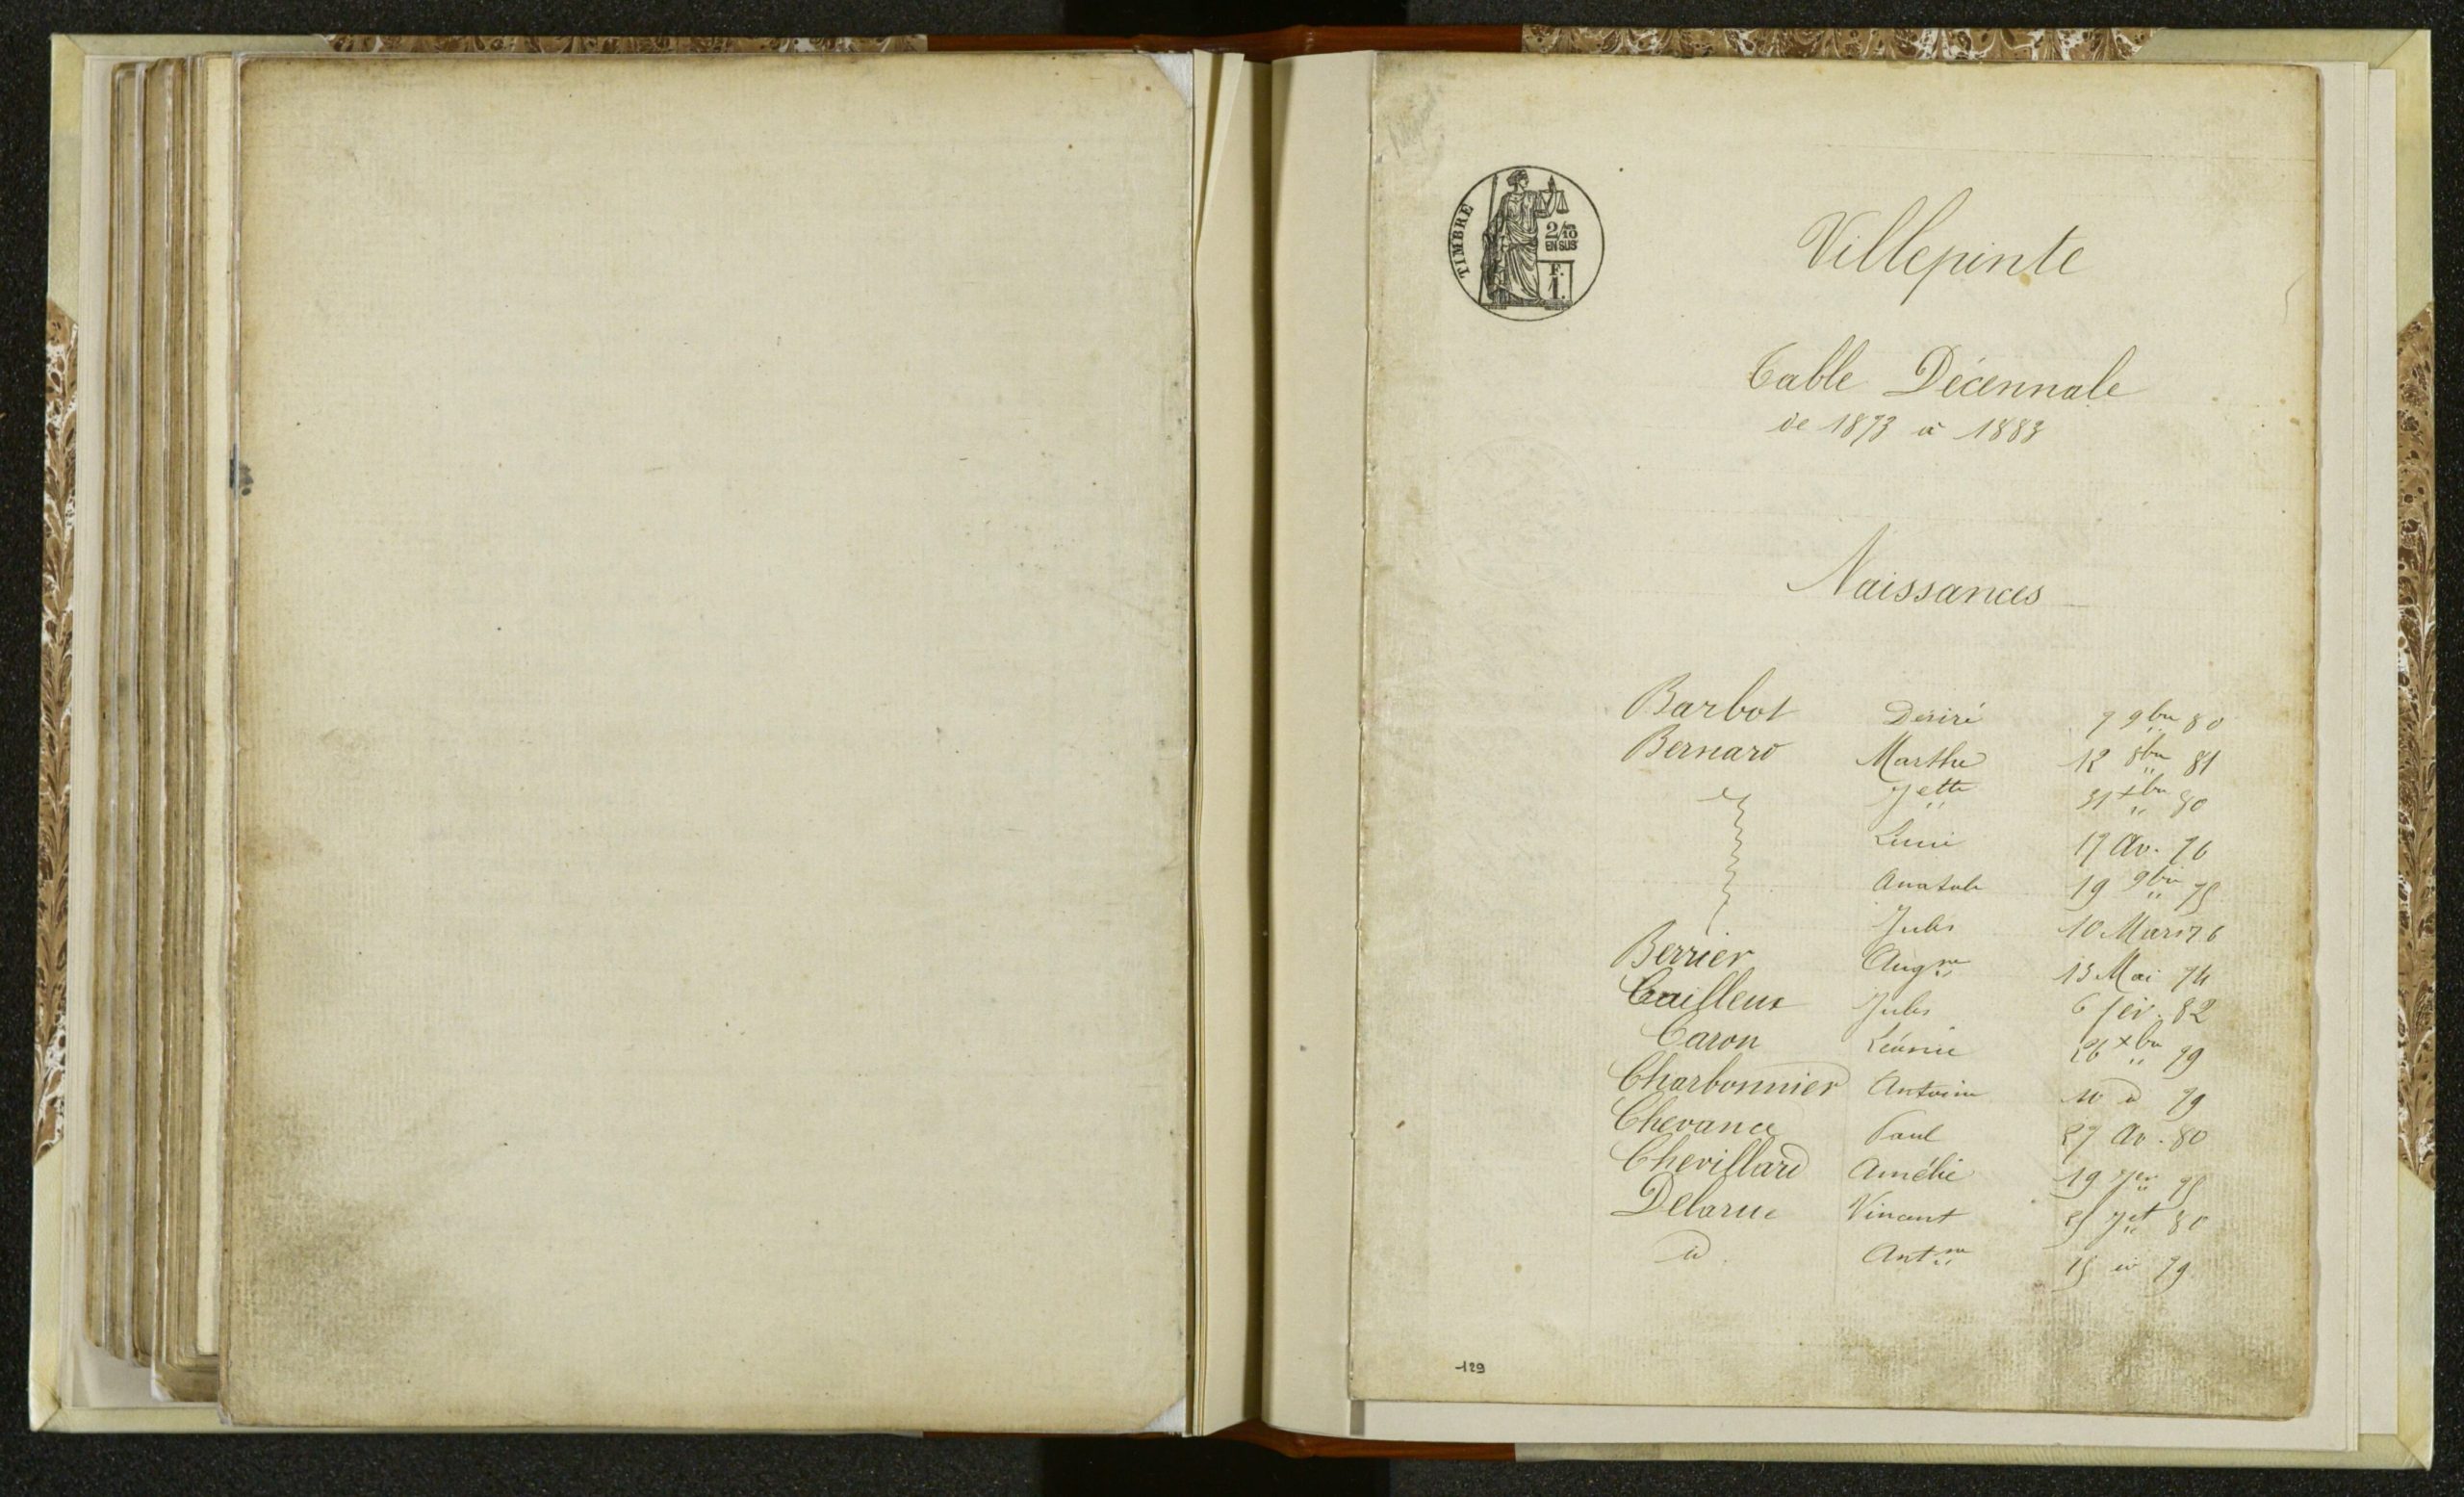 TIMBRE
2/10
EN SUS
F.
1.
Villepinte
Table Décennale
de 1873 à 1883
Naissances
Barbot Désiré 7 9bre 80
Bernard Marthe 12 8bre 81
31 xbre 80
17 Av. 76
Anatole 19 9bre 75
Jules 10 Mars 76
Berrier Augne 13 Mai 74
Cailleux Jules 6 fév. 82
Caron Léonie 26 xbre 79
Charbonnier Antoine 10 d 79
Chevance Paul 27 Av. 80
Chevillard Amélie 19 75
Delarue Vincent Jet 80
id Antne 15 id 79
129